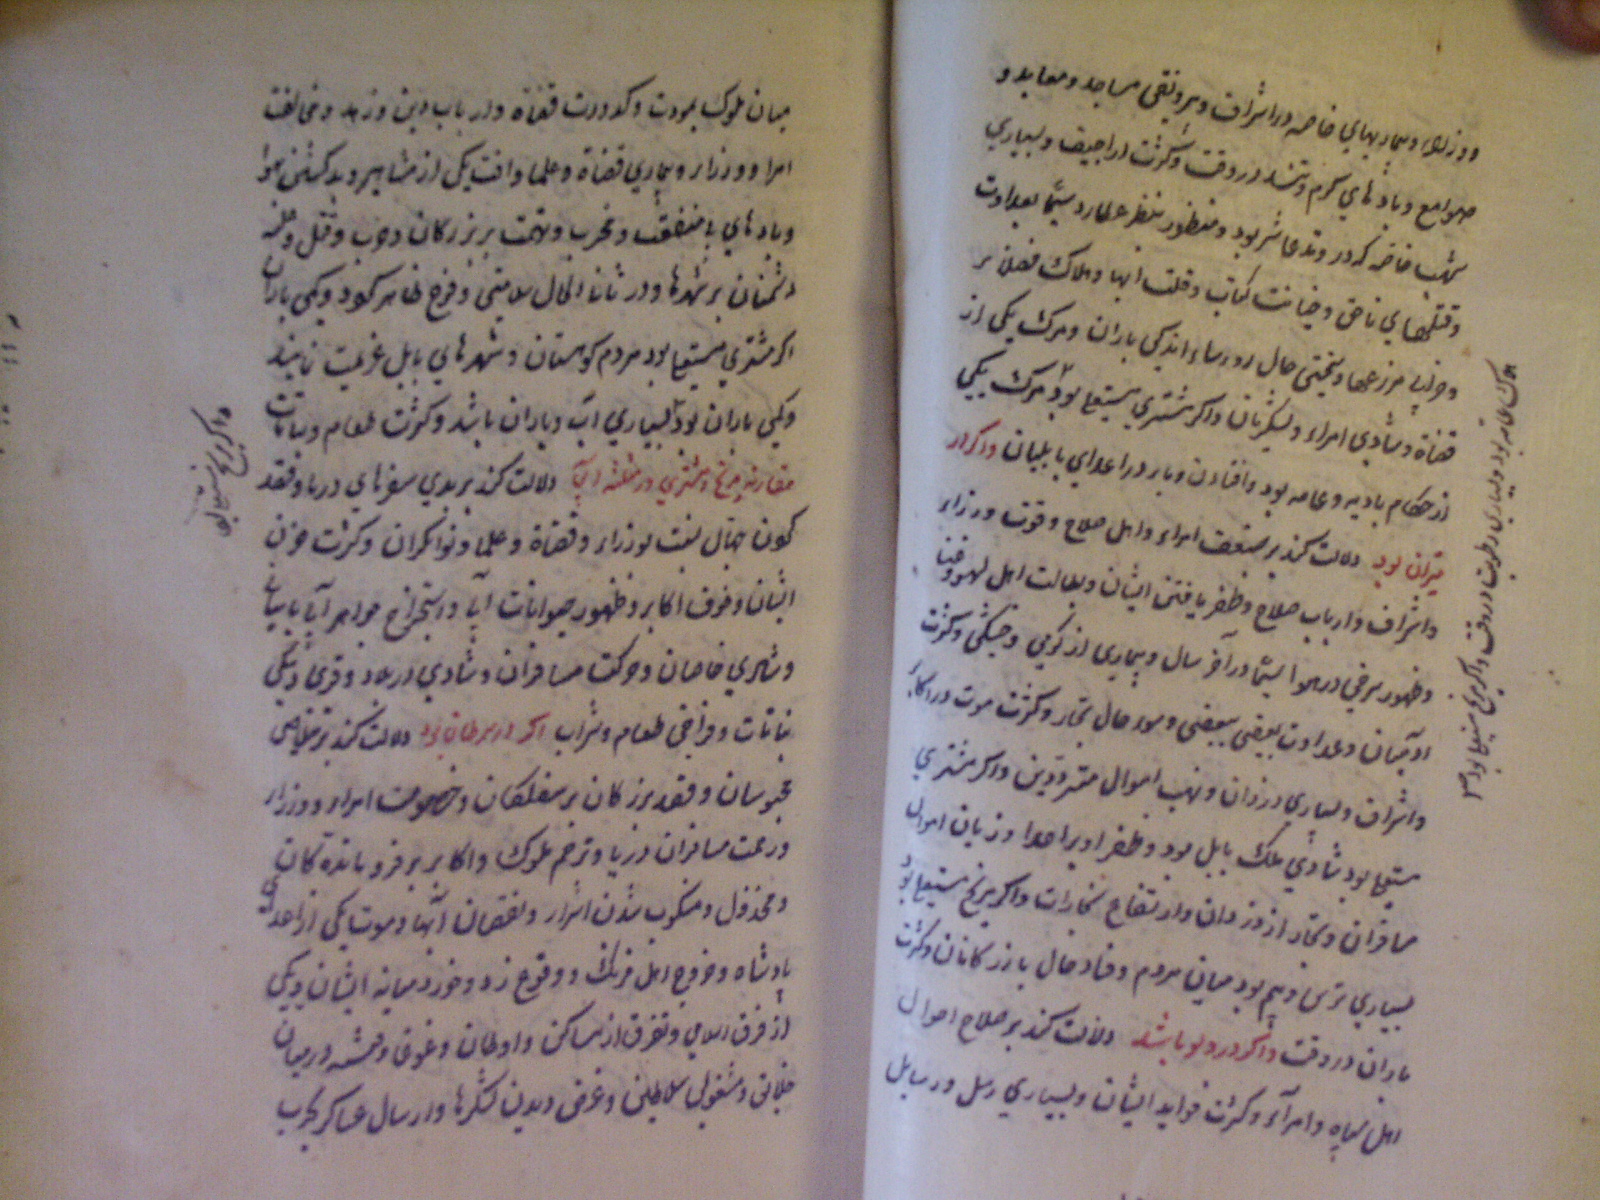 وزراء و بیماریهای خاصه در اشراف و بیرونقی مساجد و معابد و
صوامع و بادهای گرم و تند در وقت و کثرت اراجیف و بسیاری
شهب خاصه که در وتد عاشر بود و منظور بنظر عطارد سیما بعداوت
و قتلهای ناحق و خیانت کتاب و قلت آنها و هلاک
و خرابی مزرعها و سختی حال رؤساء و اندکی باران و مرگ یکی از
قضاة و شادی امراء و لشکریان و اگر مشتری مستعلی بود مرگ یکی
از حکام بادیه و عامه بود و افتادن وبا در اعدای بابلیان و اگر در
میزان بود دلالت کند بر ضعف امراء و اهل صلاح و قوت وزراء
و اشراف و ارباب صلاح و ظفر یافتن ایشان و بطالت اهل لهو و غنا
و ظهور سرخی در هوا سیما در آخر سال و بیماری از گرمی و خشکی و کثرت
آدمیان و عداوت بعضی ببعضی و سوء حال تجار و کثرت موت در اکابر
و اشراف و بسیاری دزدان و نهب اموال مترددین و اگر مشتری
مستعلی بود شادی ملک بابل بود و ظفر او بر اعدا و زیان اموال
مسافران و تجار از دزدان و ارتفاع بخارات و اگر مریخ مستعلی بود
بسیاری ترس و بیم بود میان مردم و فساد حال بازرگانان و کثرت
باران در وقت و اگر در دلو باشد دلالت کند بر صلاح احوال
اهل سپاه و امرآء و کثرت فواید ایشان و بسیاری رسل و رسایل
میان ملوک بمودت و کدورت قضاة و ارباب دین و زهد و مخالفت
امرا و وزراء و بیماری قضاة و علما و آفت یکی از مشاهیر و بد گشتن هوا
و بادهای با منفعت و مخرب و تهمت بر بزرگان و حرب و قتل و غلبه
دشمنان بر شهرها و در ثانی الحال سلامتی و فرح ظاهر گردد و کمی باران
اگر مشتری مستعلی بود مردم کوهستان و شهرهای بابل عزیمت نمایند
و کمی باران بود بسیاری آب و باران باشد و کثرت طعام و نباتات
مقارنه مریخ و مشتری در مثلثه آبی دلالت کند بر بدی سفرهای دریا و فقد
کردن جهال نسبت بوزراء و قضاة و علما و توانگران و کثرت حزن
ایشان و خوف اکابر و ظهور حیوانات آبی و استخراج جواهر آبی
و شادی خاصان و حرکت مسافران و شادی در بلاد و قری و نیکی
نباتات و فراخی طعام و شراب اگر در سرطان بود دلالت کند بر خلاصی
محبوسان و فقد بزرگان بر سفلگان و خصومت امراء و وزراء
و زحمت مسافران دریا و ترحم ملوک و اکابر بر فروماندگان
و مخذول و منکوب شدن اشرار و نقصان آبها و موت یکی از اعدای
پادشاه و خروج اهل فرنگ و وقوع زد و خورد میانه ایشان و یکی
از فرق اسلامی و تفرق از مساکن و اوطان و غوغا و فتنه در میان
خلایق و مشغولی سلاطین و عرض دیدن لشکرها و ارسال عساکر بحرب
و اگر مریخ مستعلی بود